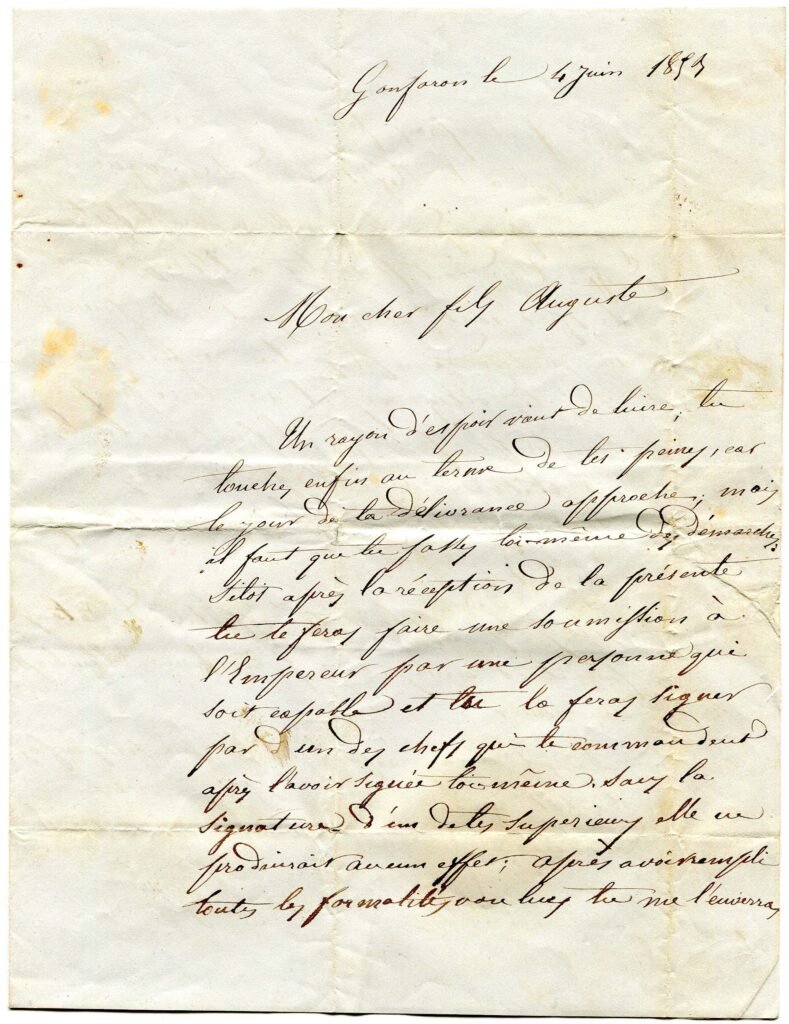 Gonfaron le 4 Juin 1853
Mon cher fils Auguste
Un rayon d'espoir vient de luire, tu
touches enfin au terme de tes peines, car
le jour de la délivrance approche; mais
il faut que tu fasses toi-même des démarches.
sitôt après la réception de la présente
tu te feras faire une soumission à
l'Empereur par une personne qui
soit capable et tu la feras signer
par d'un des chefs qui te commandent
après l'avoir signée toi-même. Sans la
signature d'un de tes supérieurs elle ne
produirait aucun effet; après avoir rempli
toutes les formalités voulues tu me l'enverras